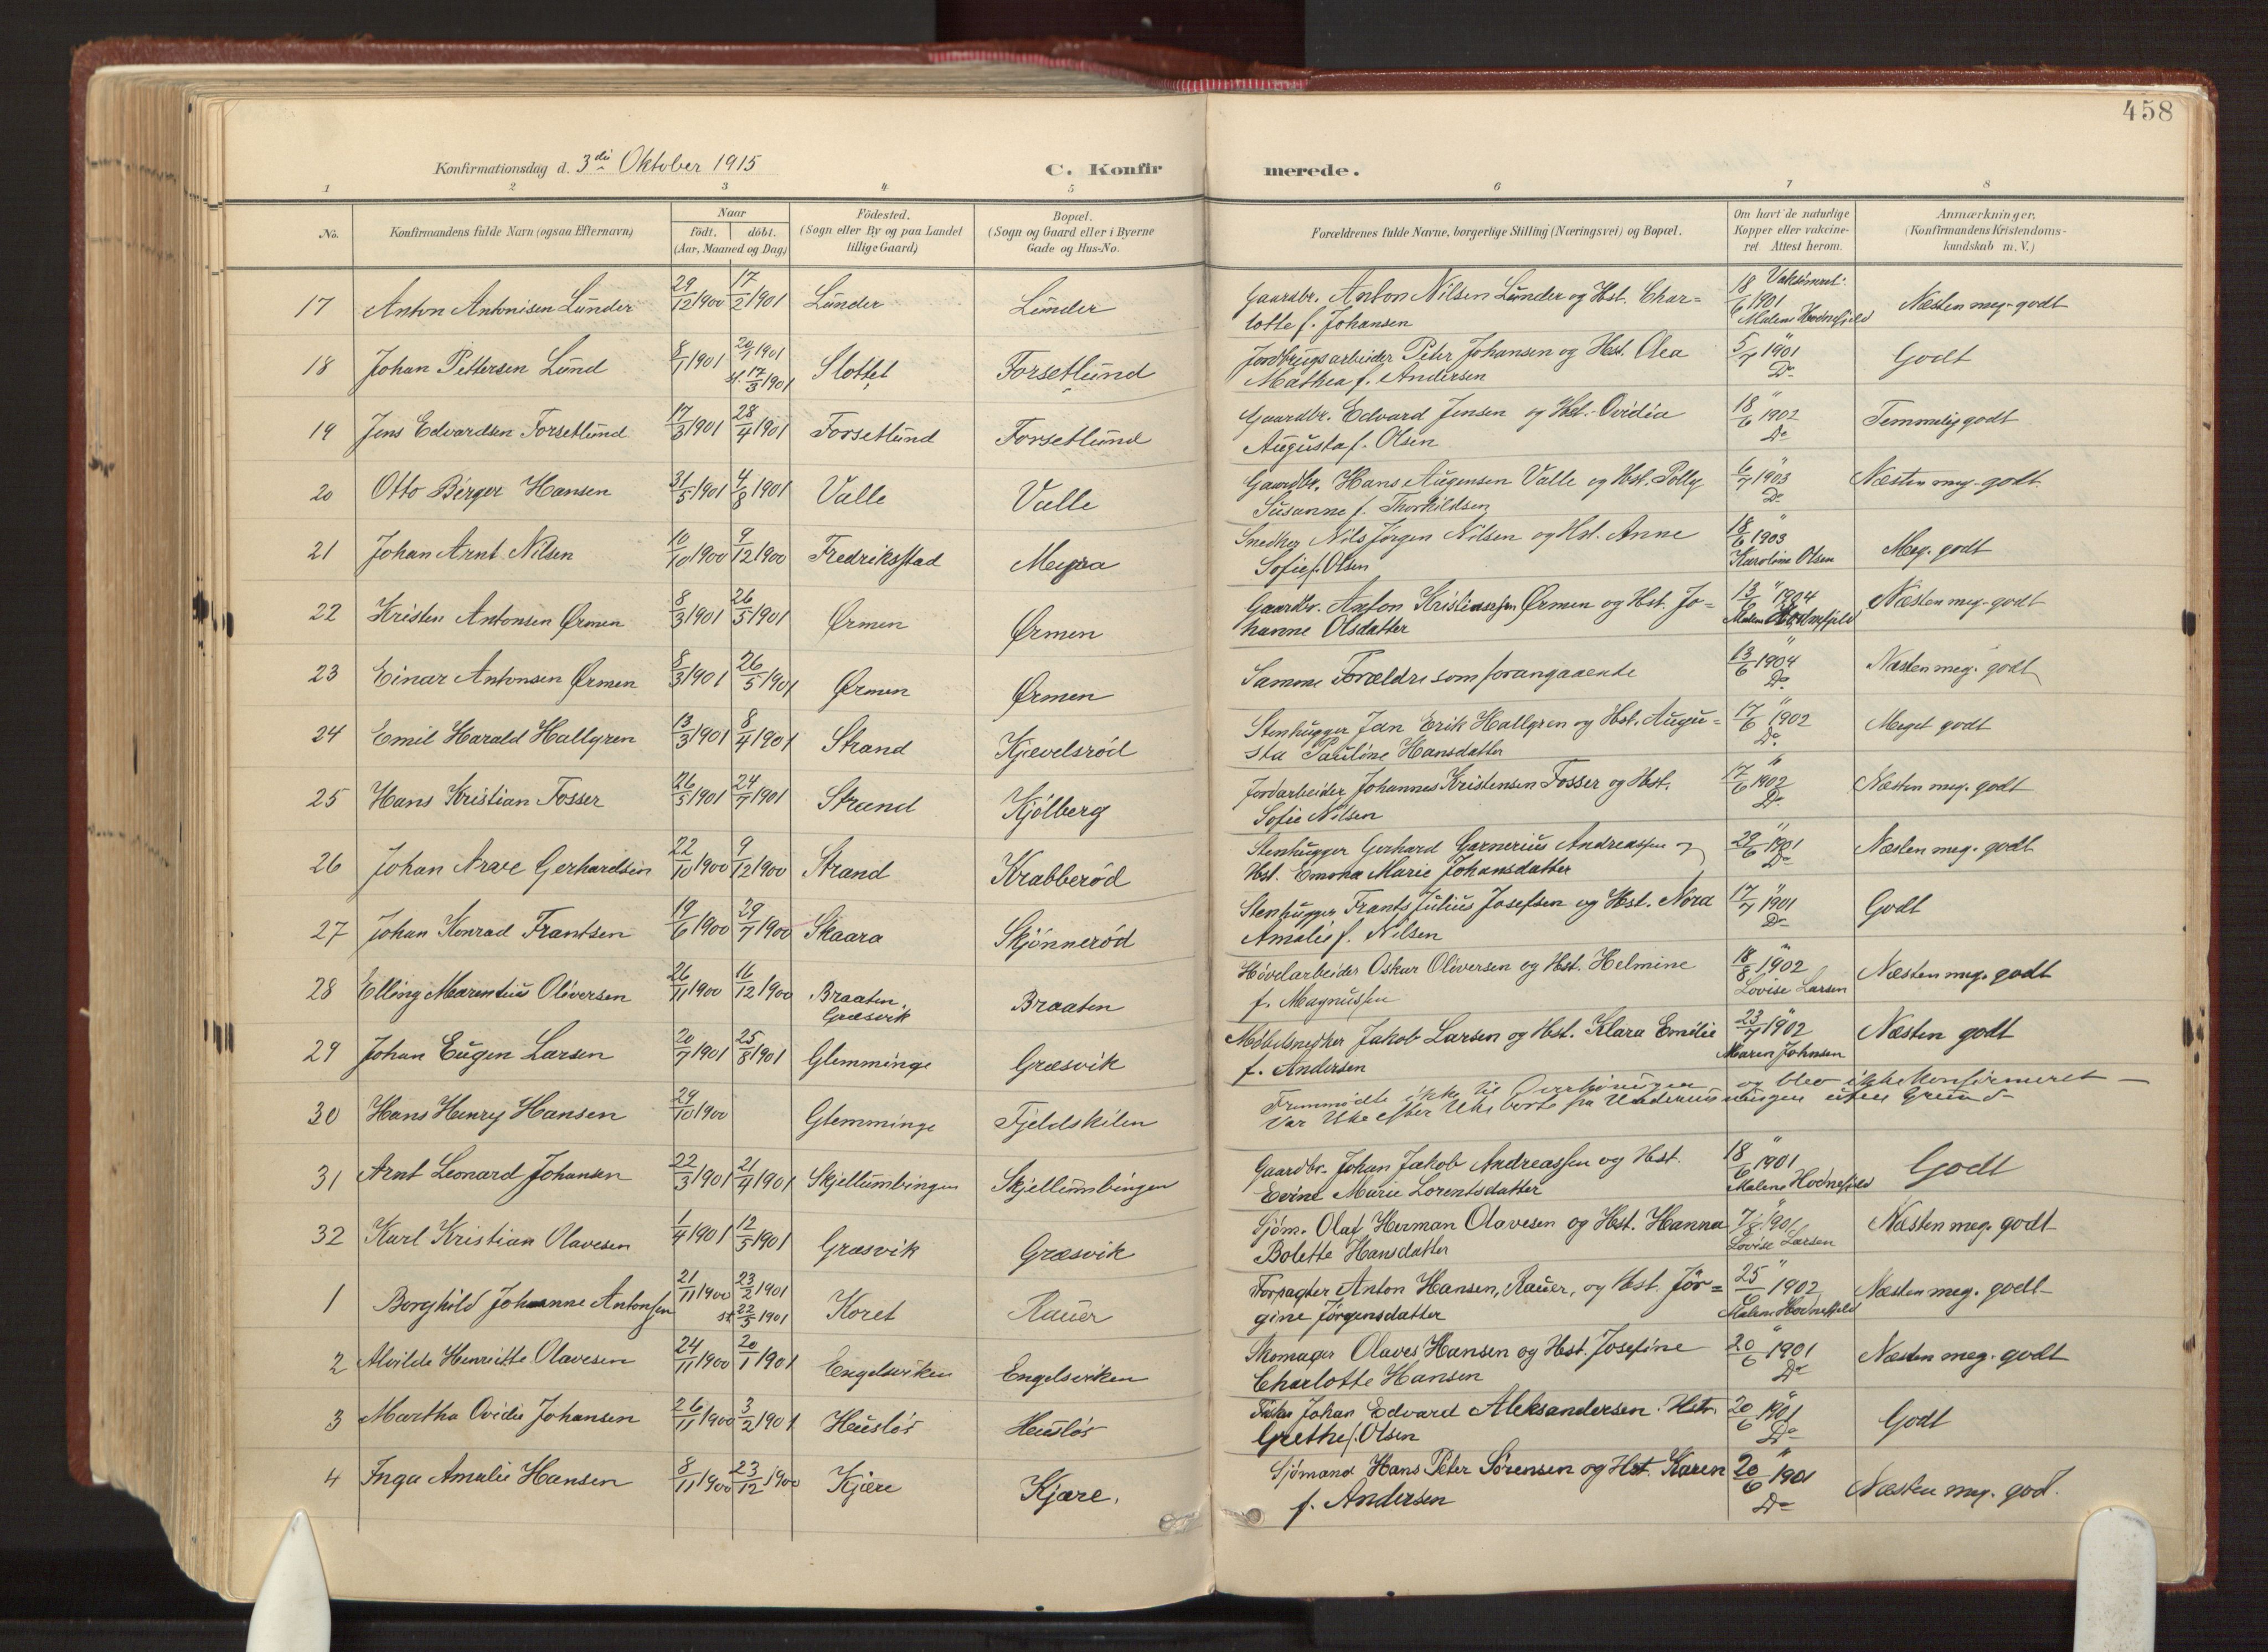 458
Konfirmationsdag d. 3die Oktober 1915
C. Konfirmerede.
1 2 3 4 5 6 7 8
No. | Konfirmandens fulde Navn (ogsaa Efternavn) | Naar født. | døbt. (Aar, Maaned og Dag) | Fødested. (Sogn eller By og paa Landet tillige Gaard) | Bopæl. (Sogn og Gaard eller i Byerne Gade og Hus-No. | Forældrenes fulde Navne, borgerlige Stilling (Næringsvei) og Bopæl. | Om havt de naturlige Kopper eller vakcineret. Attest herom. | Anmærkninger. (Konfirmandens Kristendomskundskab m. V.)
17 Anton Antonisen Lunder 29/12 1900 17/2 1901 Lunder Lunder Gaardbr. Anton Nilsen Lunder og Hst. Char=
lotte f. Johansen 18/6 1901 Malene Hodnefjeld Næsten meg. godt
18 Johan Pettersen Lund 8/1 1901 20/1 1901 st. 17/3 1901 Slottet Forsetlund Jordbrugsarbeider Peter Johansen og Hst. Olea
Mathea f. Andersen 5/7 1901 Do Godt
19 Jens Edvardsen Forsetlund 17/3 1901 28/4 1901 Forsetlund Forsetlund Gaardbr. Edvard Jensen og Hst. Ovidia
Augusta f. Olsen 18/6 1902 Do Temmelig godt
20 Otto Birger Hansen 31/5 1901 4/8 1901 Valle Valle Gaardbr. Hans Augensen Valle og Hst. Polly
Susanne f. Thorkildsen 6/7 1903 Do Næsten meg. godt.
21 Johan Arnt Nilsen 10/10 1900 9/12 1900 Fredriksstad Snedker Nils Jørgen Nilsen og Hst. Anne
Sofie f. Olsen 18/6 1903 Karoline Olsen Meg. godt
22 Kristen Antonsen Ørmen 8/3 1901 26/5 1901 Ørmen Ørmen Gaardbr. Anton Kristiansen Ørmen og Hst. Jo=
hanne Olsdatter 13/6 1904 Malene Hodnefjeld Næsten meg. godt
23 Einar Antonsen Ørmen 8/3 1901 26/5 1901 Ørmen Ørmen Samme Forældre som forangaaende 13/6 1904 Do. Næsten meg. godt
24 Emil Harald Hallgren 13/3 1901 8/4 1901 Strand Kjævelsrød Stenhugger Jan Erik Hallgren og Hst. Augu=
sta Pauline Hansdatter 17/6 1902 Do. Meget godt
25 Hans Kristian Fosser 26/5 1901 24/7 1901 Strand Kjølberg Jordarbeider Johannes Kristensen Fosser og Hst.
Sofie Nilsen 17/6 1902 Do. Næsten meg. godt
26 Johan Arve Gerhardsen 22/10 1900 9/12 1900 Strand Krabberød Stenhugger Gerhard Garnerius Andreassen og
Hst. Emma Marie Johansdatter 22/6 1901 Do Næsten meg. godt
27 Johan Konrad Frantsen 19/6 1900 29/7 1900 Skaara Skjønnerød Stenhugger Frants Julius Josefsen og Hst. Nora
Amalie f. Nilsen 17/7 1901 Do Godt
28 Elling Marentius Oliversen 26/11 1900 16/12 1900 Braaten, Græsvik Braaten Høvelarbeider Oskar Oliversen og Hst. Helmine
f. Magnussen 18/8 1902 Lovise Larsen Næsten meg. godt
29 Johan Eugen Larsen 20/7 1901 25/8 1901 Glemminge Græsvik Møbelsnedker Jakob Larsen og Hst. Klara Emilie
f. Andersen 23/7 1902 Maren Johnsen Næsten godt
30 Hans Henry Hansen 29/10 1900 Glemminge Fjeldskilen Fremmødte ikke til Overhøringen og blev ikke konfirmeret —
Var Uke efter Uke borte fra Undervisningen uten Grund —
31 Arnt Leonard Johansen 22/3 1901 21/4 1901 Skjellumbingen Skjellumbingen Gaardbr. Johan Jakob Andreassen og Hst.
Evine Marie Lorentsdatter 18/6 1901 Malene Hodnefjeld Godt
32 Karl Kristian Olavesen 1/4 1901 12/5 1901 Græsvik Græsvik Sjøm. Olaf Herman Olavesen og Hst. Hanna
Bolette Hansdatter 1901 Lovise Larsen Næsten meg. godt
1 Borghild Johanne Antonsen 21/11 1900 23/2 1901 st 22/5 1901 Koret Rauer Forpagter Anton Hansen, Rauer, og Hst. Jør=
gine Jørgensdatter 25/6 1902 Malene Hodnefjeld Næsten meg. godt
2 Alvilde Henriette Olavesen 24/11 1900 20/1 1901 Engelsviken Engelsviken Skomager Olaves Hansen og Hst. Josefine
Charlotte Hansen 20/6 1901 Do Næsten meg. godt
3 Martha Ovidie Johansen 26/11 1900 3/2 1901 Husløs Husløs Fisker Johan Edvard Aleksandersen. Hstr.
Grethe f. Olsen 20/6 1901 Do Godt
4 Inga Amalie Hansen 8/11 1900 23/12 1900 Kjære Kjære. Sjømand Hans Peter Sørensen og Hst. Karen
f. Andersen 20/6 1901 Do Næsten meg. god.